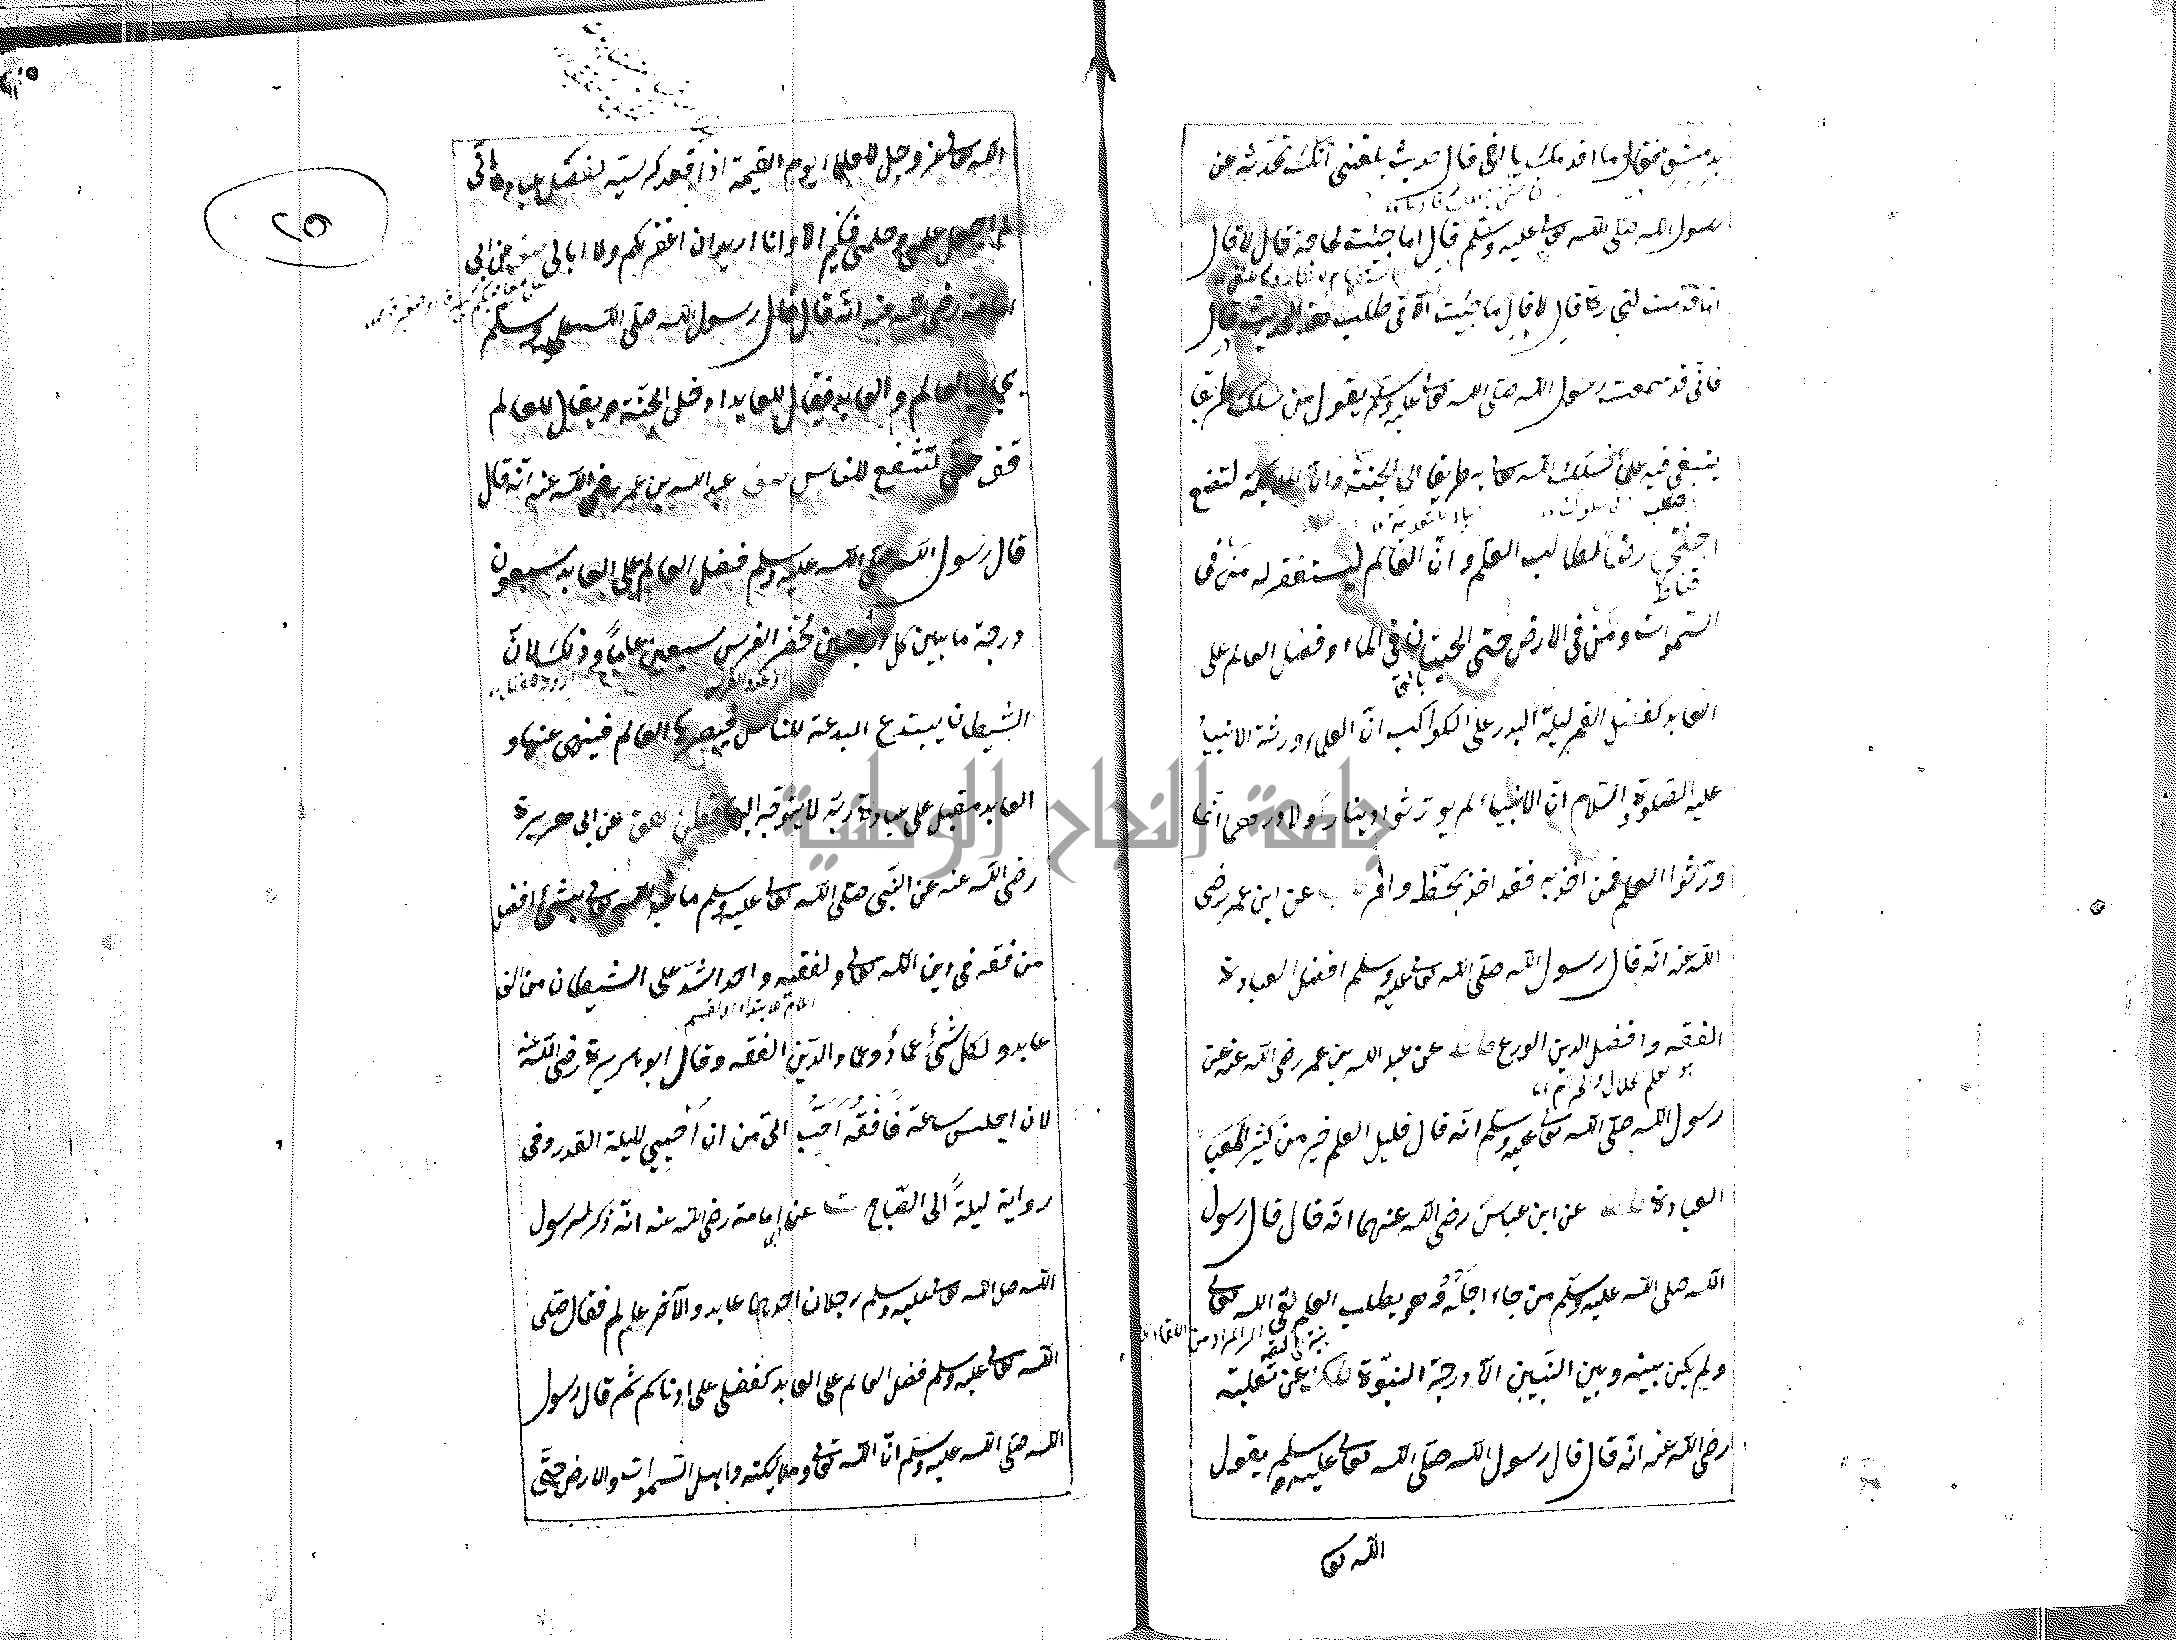 بدمشق فقال ما اقدمك يا اخى قال حديث بلغنى انك تحدثه عن
رسول الله صلى الله تعا عليه وسلم قال اما جئت لحاجة قال لا قال
اما قدمت لتجارة قال لا قال ما جئت الا فى طلب هذا الحديث قال
فانى قد سمعت رسول الله صلى الله تعا عليه وسلم يقول من سلك طريقا
يبتغى فيه علما سلك الله تعا به طريقا الى الجنة وان الملائكة لتضع
اجنحتها رضا لطالب العلم وان العالم ليستغفر له من فى
السموات ومن فى الارض حتى الحيتان فى الماء وفضل العالم على
العابد كفضل القمر ليلة البدر على الكواكب ان العلماء ورثة الانبياء
عليه الصلوة والسلام ان الانبياء لم يورثوا دينارا ولا درهما انما
ورثوا العلم فمن اخذ به فقد اخذ بحظ وافر عن ابن عمر رضى
الله عنه انه قال رسول الله صلى الله تعالى عليه وسلم افضل العبادة
الفقه وافضل الدين الورع عن عبد الله بن عمر رضى الله عنه عن
هو علم الحلال والحرام
رسول الله صلى الله تعالى عليه وسلم انه قال قليل العلم خير من كثير
العبادة عن ابن عباس رضى الله عنهما انه قال قال رسول
الله صلى الله عليه وسلم من جاء اجله وهو يطلب العلم لقى الله تعالى
ولم يكن بينه وبين النبيين الا درجة النبوة عن ثعلبة
رضى الله عنه انه قال قال رسول الله صلى الله تعالى عليه وسلم يقول
الله تعا
الله تعالى عز وجل للعلماء يوم القيمة اذا قعد كرسيه لفصل عباده انى
لم اجعل علمى وحلمى فيكم الا وانا اريد ان اغفر لكم ولا ابالى عن ابى
امامة رضى الله عنه انه قال قال رسول الله صلى الله عليه وسلم
يجاء بالعالم والعابد فيقال للعابد ادخل الجنة ويقال للعالم
قف حتى تشفع للناس عن عبد الله بن عمر رضى الله عنه انه قال
قال رسول الله صلى الله عليه وسلم فضل العالم على العابد سبعون
درجة ما بين كل درجتين حضر الفرس سبعين عاما وذلك لان
الشيطان يبتدع البدعة للناس فيبصرها العالم فينهى عنها و
العابد مقبل على عبادة ربه لا يتوجه عن ابى هريرة
رضى الله عنه عن النبى صلى الله تعا عليه وسلم ما عبد الله تعالى بشئ افضل
من فقه فى دين الله تعالى ولفقيه واحد اشد على الشيطان من الف
عابد ولكل شئ عماد وعماد الدين الفقه وقال ابو هريرة رضى الله عنه
لان اجلس ساعة فافقه احب الى من ان احيى ليلة القدر وفى
رواية ليلة الى الصباح عن ابى امامة رضى الله عنه انه ذكر لرسول
الله صلى الله تعالى عليه وسلم رجلان احدهما عابد والآخر عالم فقال صلى
الله تعالى عليه وسلم فضل العالم على العابد كفضلى على ادناكم ثم قال رسول
الله صلى الله عليه وسلم ان الله تعالى وملائكته واهل السموات والارض حتى
جامعة النجاح الوطنية